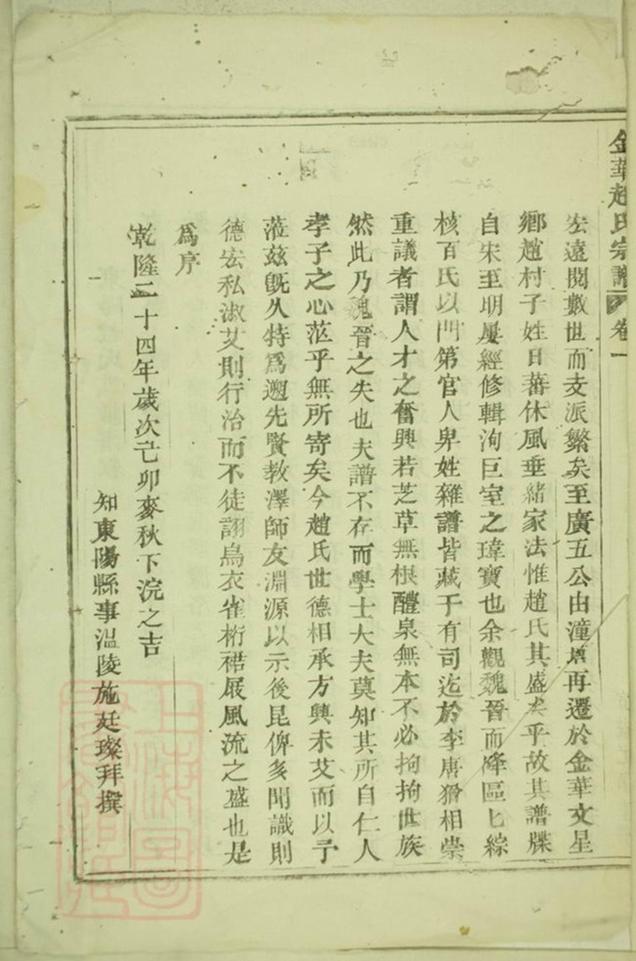 金華趙氏宗譜 卷一
宏遠閱數世而支派繁矣至廣五公由潼塘再遷於金華文星
鄉趙村子姓日蕃休風垂緒家法惟趙氏其盛矣乎故其譜牒
自宋至明屢經修輯洵巨室之瑋寶也余觀魏晉而降區匕綜
核百氏以門第官人卑姓雜譜皆藏于有司迄於李唐猶相崇
重議者謂人才之奮興若芝草無根醴泉無本不必拘拘世族
然此乃魏晉之失也夫譜不存而學士大夫莫知其所自仁人
孝子之心茫乎無所寄矣今趙氏世德相承方興未艾而以予
蒞茲既久特為遡先賢教澤師友淵源以示後昆俾多聞識則
德宏私淑艾則行治而不徒詡烏衣雀桁裙屐風流之盛也是
為序
乾隆二十四年歲次己卯麥秋下浣之吉
知東陽縣事溫陵施廷璨拜撰